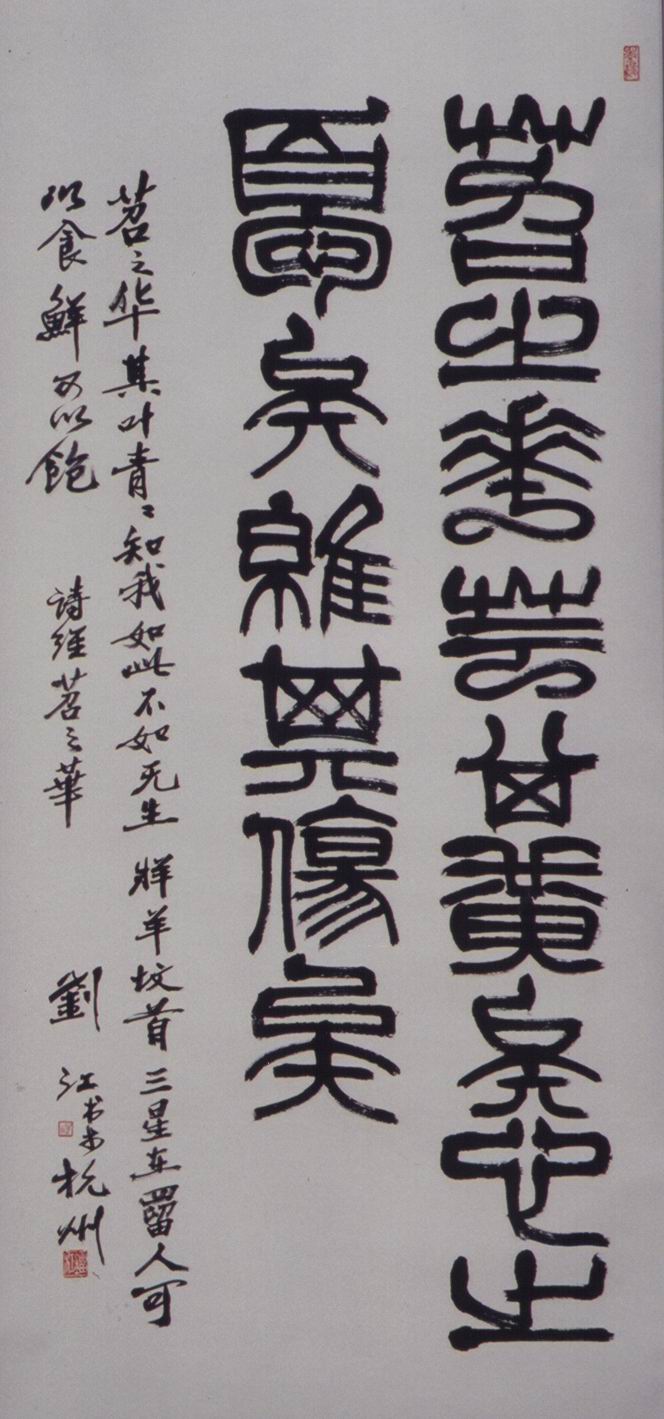 苕之華芸其黃矣心之
憂矣維其傷矣
苕之华其叶青々知我如此不如无生牂羊坟首三星在罶人可
以食鮮可以飽 詩經苕之華 劉江书于杭州